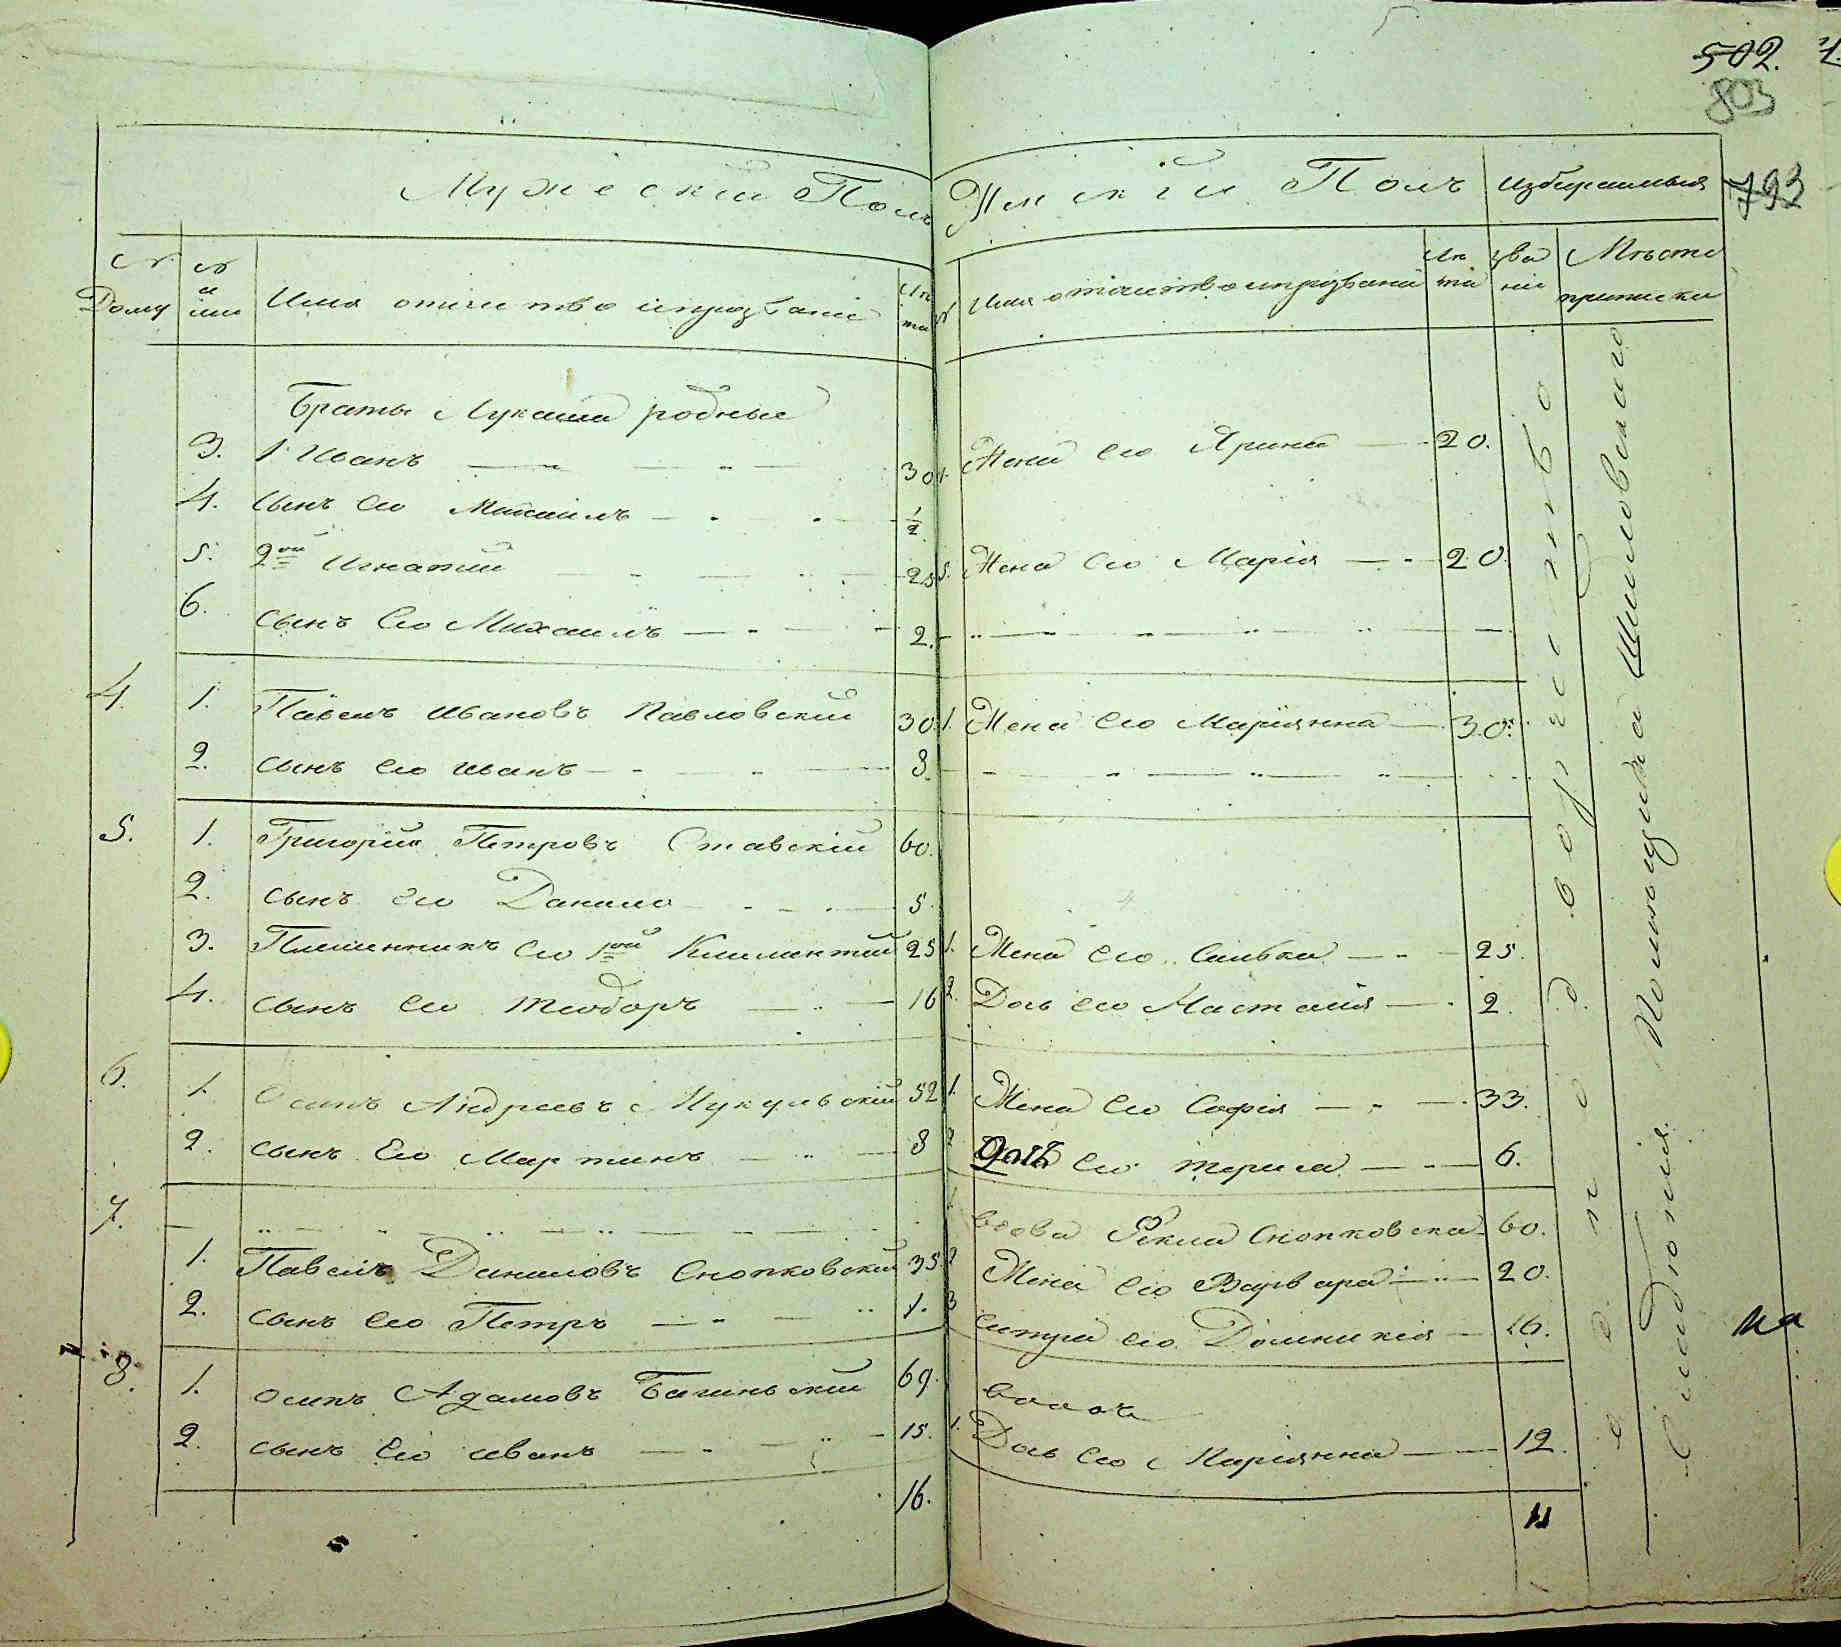 502.
803
793
Мужескій Полъ
Женскій Полъ
Избираимыя
№ Дому
№ души
Имя отичество ипрозваніе
Лѣта
№
Имя отичество ипрозваніе
Лѣта
званіе
Мѣсто приписки
Браты Лукаша родные
3. 1. Иванъ 30 Жена его Ярина 20.
4. Сынъ его Михаилъ 1/2
5. 2ой Игнатій 25 Жена его Марія 20.
6. Сынъ Его Михаилъ 2.
4. 1. Павелъ Ивановъ Павловскій 30. 1. Жена Его Маріянна 30.
2. Сынъ его Иванъ 8.
5. 1. Григорій Петровъ Ставскій 60.
2. Сынъ его Данило 5.
3. Племянникъ его 1ой Климентій 25 1. Жена его 25.
4. Сынъ его Теодоръ 16 2. Дочь его Настасія 2.
6. 1. Осипъ Андреевъ Мукульскій 52 1. Жена Его Софія 33.
2. Сынъ Его Мартинъ 8 2. Дочь его Териса 6.
7. вдова Фекла Снопковска 60.
1. Павелъ Даниловъ Снопковскій 35 2 Жена его Варвара 20.
2. Сынъ его Петръ 1. 3 Сестра его Доминикія 16.
8. 1. Осипъ Адамовъ Багиньскій 69. вдовъ
2. Сынъ Его Иванъ 15. 1. Дочь его Маріянна 12.
16. 11
однодворчество
Слабодтія Помощика Шидловскаго
на